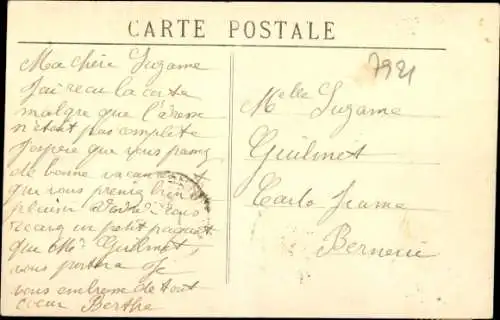 CARTE POSTALE
7921
Ma chère Suzanne
J'ai recu la carte
malgre que l'adresse
n'etant pas complete
J'espère que vous passez
de bonne vacances et
que vous prenez bien
plaisir vous
un petit paquet
que Mr Guilmet
vous portera Je
vous embrasse de tout
coeur Berthe
Melle Suzanne
Guilmet
Carlo Jeanne
Berneric